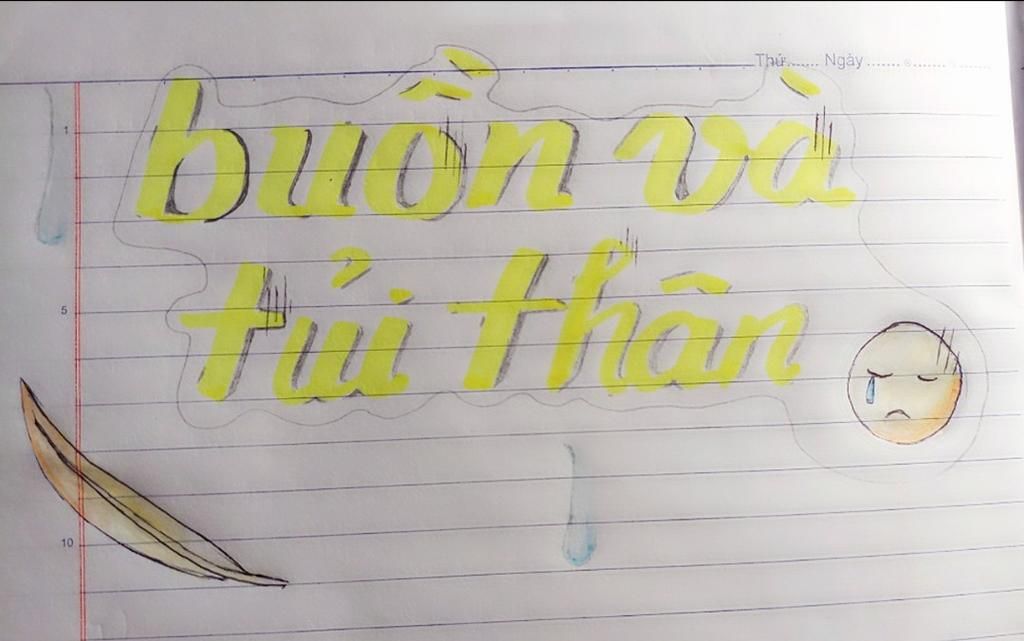 Thứ....... Ngày ....... ....... .......
buồn và
1
tủi thân
5
10